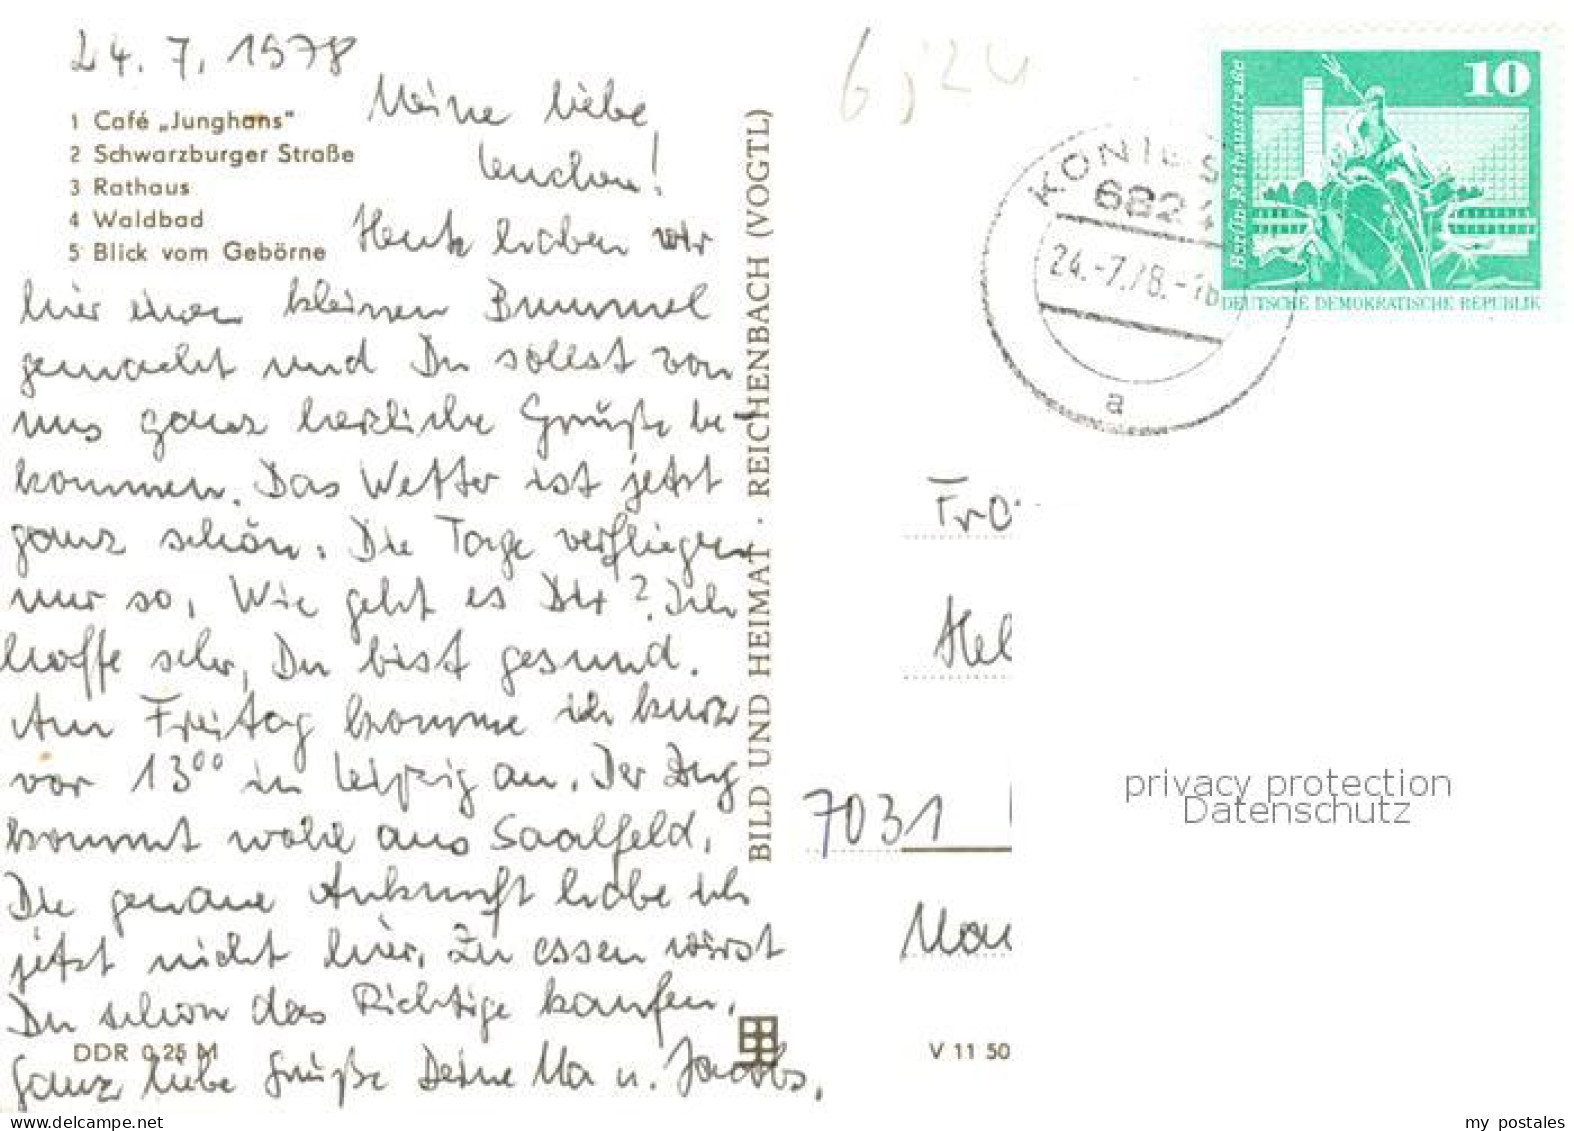 24. 7. 1978
1 Café „Junghans"
2 Schwarzburger Straße
3 Rathaus
4 Waldbad
5 Blick vom Gebörne
Meine liebe
!
Heute haben wir
hier einen kleinen Bummel
gemacht und Du sollst von
uns ganz herzliche Grüße be-
kommen. Das Wetter ist jetzt
ganz schön. Die Tage verfliegen
nur so. Wie geht es Dir? Ich
hoffe sehr, Du bist gesund.
Am Freitag komme ich kurz
vor 13⁰⁰ in Leipzig an. Der Zug
kommt wohl aus Saalfeld.
Die genaue Ankunft habe ich
jetzt nicht hier. Zu essen wirst
Du schon das Richtige kaufen.
Ganz liebe Grüße Deine Ma u. Jacobs.
DDR 0,25 M
BILD UND HEIMAT · REICHENBACH (VOGTL)
V 11 50
6,24
KÖNIGS
682
24.-7.78.-16
a
10
Berlin-Rathausstraße
DEUTSCHE DEMOKRATISCHE REPUBLIK
Fra
Hel
7031
Mau
privacy protection
Datenschutz
my postales